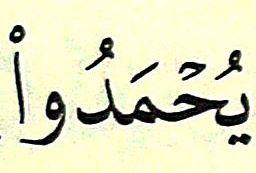 يُحْمَدُوا۟